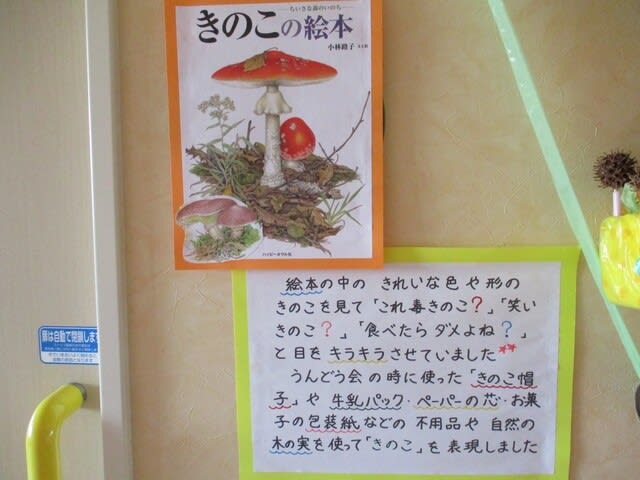 ちいさな森のいのち
きのこの絵本
小林路子
ハッピーオウル社
絵本の中の きれいな色や形の
きのこを見て「これ毒きのこ?」「笑い
きのこ?」「食べたらダメよね?」
と目をキラキラさせていました
うんどう会の時に使った「きのこ帽
子」や 牛乳パック・ペーパーの芯・お菓
子の包装紙などの 不用品や 自然の
木の実を使って「きのこ」を表現しました
扉は自動で閉鎖します